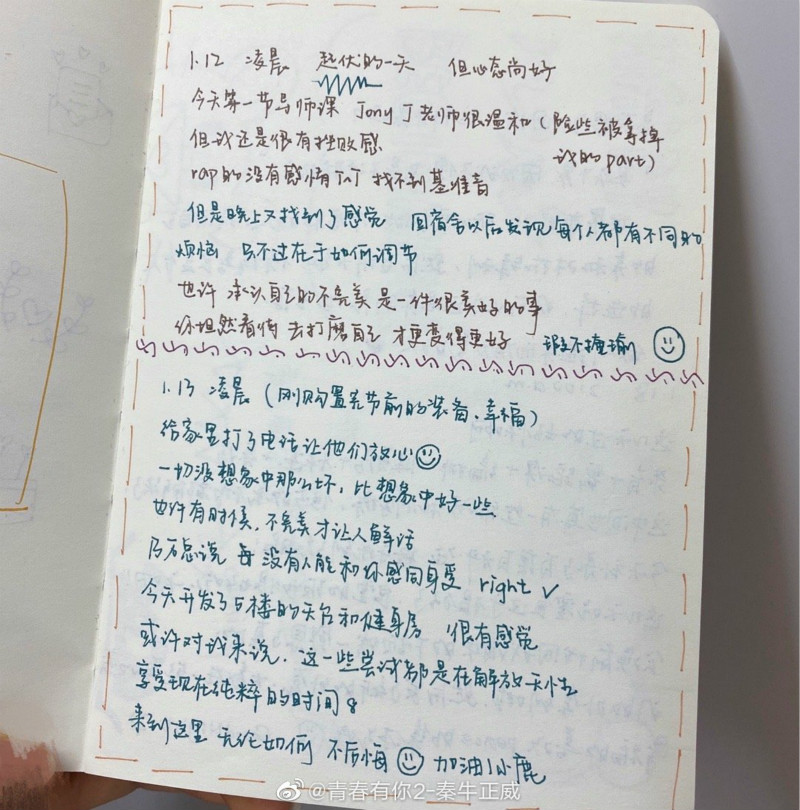 1.12 凌晨 起伏的一天 但心态尚好
今天第一节导师课 Jony J老师很温和（险些被拿掉我的part）
但我还是很有挫败感
rap的没有感情T^T 找不到基准音
但是晚上又找到了感觉 回宿舍以后发现每个人都有不同的
烦恼 只不过在于如何调节
也许 承认自己的不完美是一件很美好的事
你坦然看待 去打磨自己 才更变得更好 瑕不掩瑜
1.13 凌晨（刚购置完节前的装备、幸福）
给家里打了电话让他们放心
一切没想象中那么坏，比想象中好一些
也许有时候，不完美才让人鲜活
说 每没有人能和你感同身受 right ✓
今天开发了5楼的天台和健身房 很有感觉
或许对我来说，这一些尝试都是在解放天性
享受现在纯粹的时间。
来到这里 无论如何 不后悔 加油小鹿
@青春有你2-秦牛正威